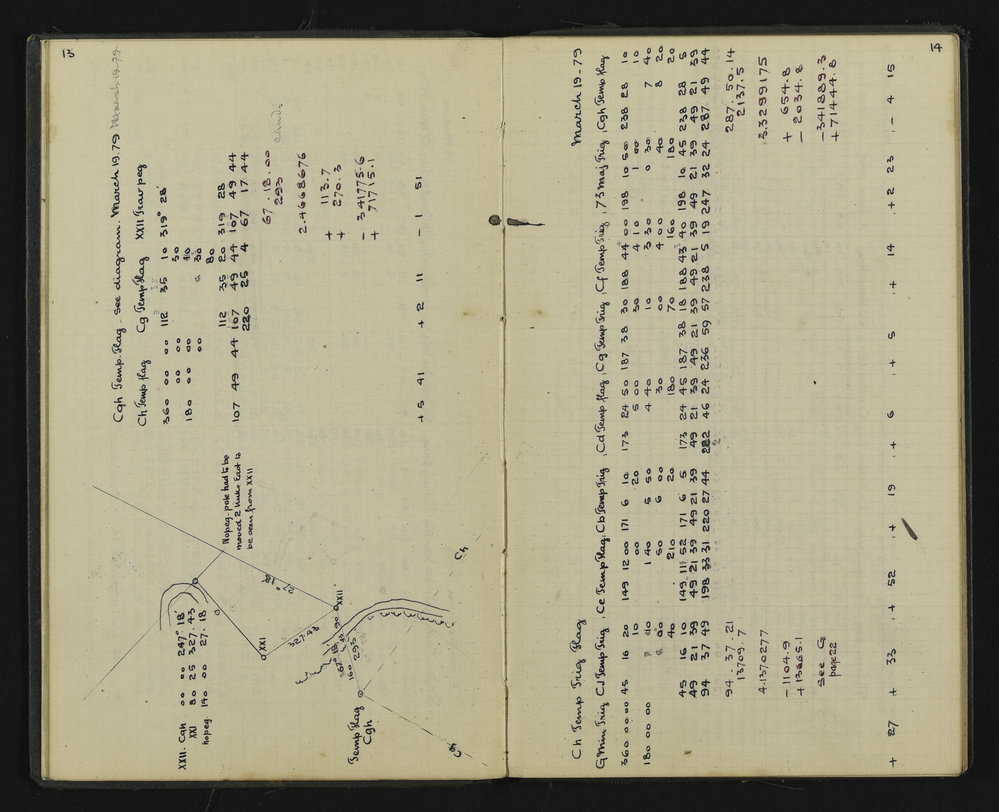 13
Cgh Temp. Flag. See diagram. March 19.79
Ch Temp flag Cg Temp Flag XXII Trav peg
360 00 00 112 35 10 319° 28'
00 00 30
180 00 00 10
00 00 30
80
112 35 20 319 28
107 49 44 107 49 44 107 49 44
220 25 4 67 17 44
67. 18. 00
293
2.4668676
+ 113.7
+ 270.3
- 341775.6
+ 71715.1
+ 5 41 + 2 11 - 1 51
Nopeg. pole had to be
moved 2 links East to
be seen from XXII
XXII. Cgh 00 00 247° 18'
XXI 80 25 327. 43
Nopeg 140 00 27. 18
XXI
XXII
327.43
27° 18'
293
Temp Flag
Cgh
Ch
Cg
14
Ch Temp Trig Flag March 19-79
G Min Trig CJ Temp Trig, Ce Temp Flag, Cb Temp Trig, Cd Temp flag, Cg Temp Trig, Cf Temp Trig, 73 Maj Trig, Cgh Temp flag
360 00 00 45 16 20 149 12 00 171 6 10 173 24 50 187 38 30 188 44 00 198 10 50 238 28 10
10 00 20 5 00 30 4 10 1 00 10
180 00 00 10 1 40 5 50 4 40 10 3 30 0 30 7 40
00 50 6 00 30 00 4 00 40 8 20
40 210 20 180 70 160 180 20
45 16 10 149 11 52 171 6 5 173 24 45 187 38 18 188 43 40 198 10 45 238 28 5
49 21 39 49 21 39 49 21 39 49 21 39 49 21 39 49 21 39 49 21 39 49 21 39
94 37 49 198 33 31 220 27 44 222 46 24 236 59 57 238 5 19 247 32 24 287 49 44
94. 37. 21 287. 50. 14
13709.7 2137.5
4.1370277 3.3299175
- 1104.9 + 654.8
+ 13665.1 - 2034.8
See G - 341889.3
page 22 + 71444.8
+ 27 + 33 + 52 + 19 + 6 + 5 + 14 + 2 23 - 4 15